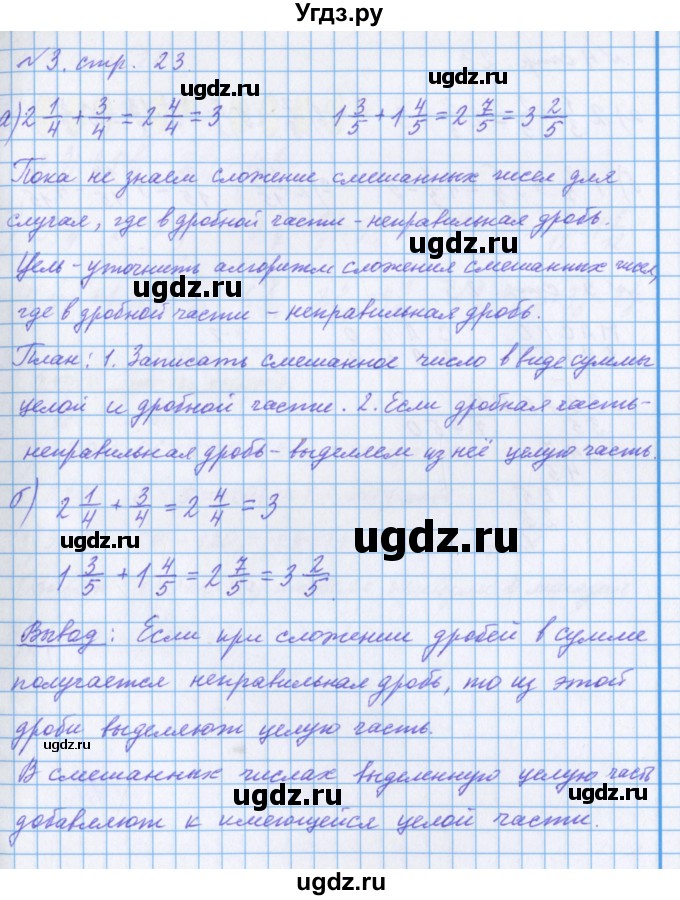 Угдз.ру
№3. стр. 23
ugdz.ru
ugdz.ru
а) 2 1/4 + 3/4 = 2 4/4 = 3    1 3/5 + 1 4/5 = 2 7/5 = 3 2/5
Пока не знаем сложение смешанных чисел для
случая, где в дробной части - неправильная дробь.
ugdz.ru
Цель - уточнить алгоритм сложения смешанных чисел,
ugdz.ru
где в дробной части - неправильная дробь.
План: 1. Записать смешанное число в виде суммы
ugdz.ru
целой и дробной части. 2. Если дробная часть -
неправильная дробь - выделяем из неё целую часть.
ugdz.ru
б) 2 1/4 + 3/4 = 2 4/4 = 3
ugdz.ru
1 3/5 + 1 4/5 = 2 7/5 = 3 2/5
Вывод: Если при сложении дробей в сумме
ugdz.ru
получается неправильная дробь, то из этой
дроби выделяют целую часть.
ugdz.ru
В смешанных числах выделенную целую часть
ugdz.ru
ugdz.ru
добавляют к имеющейся целой части.
ugdz.ru